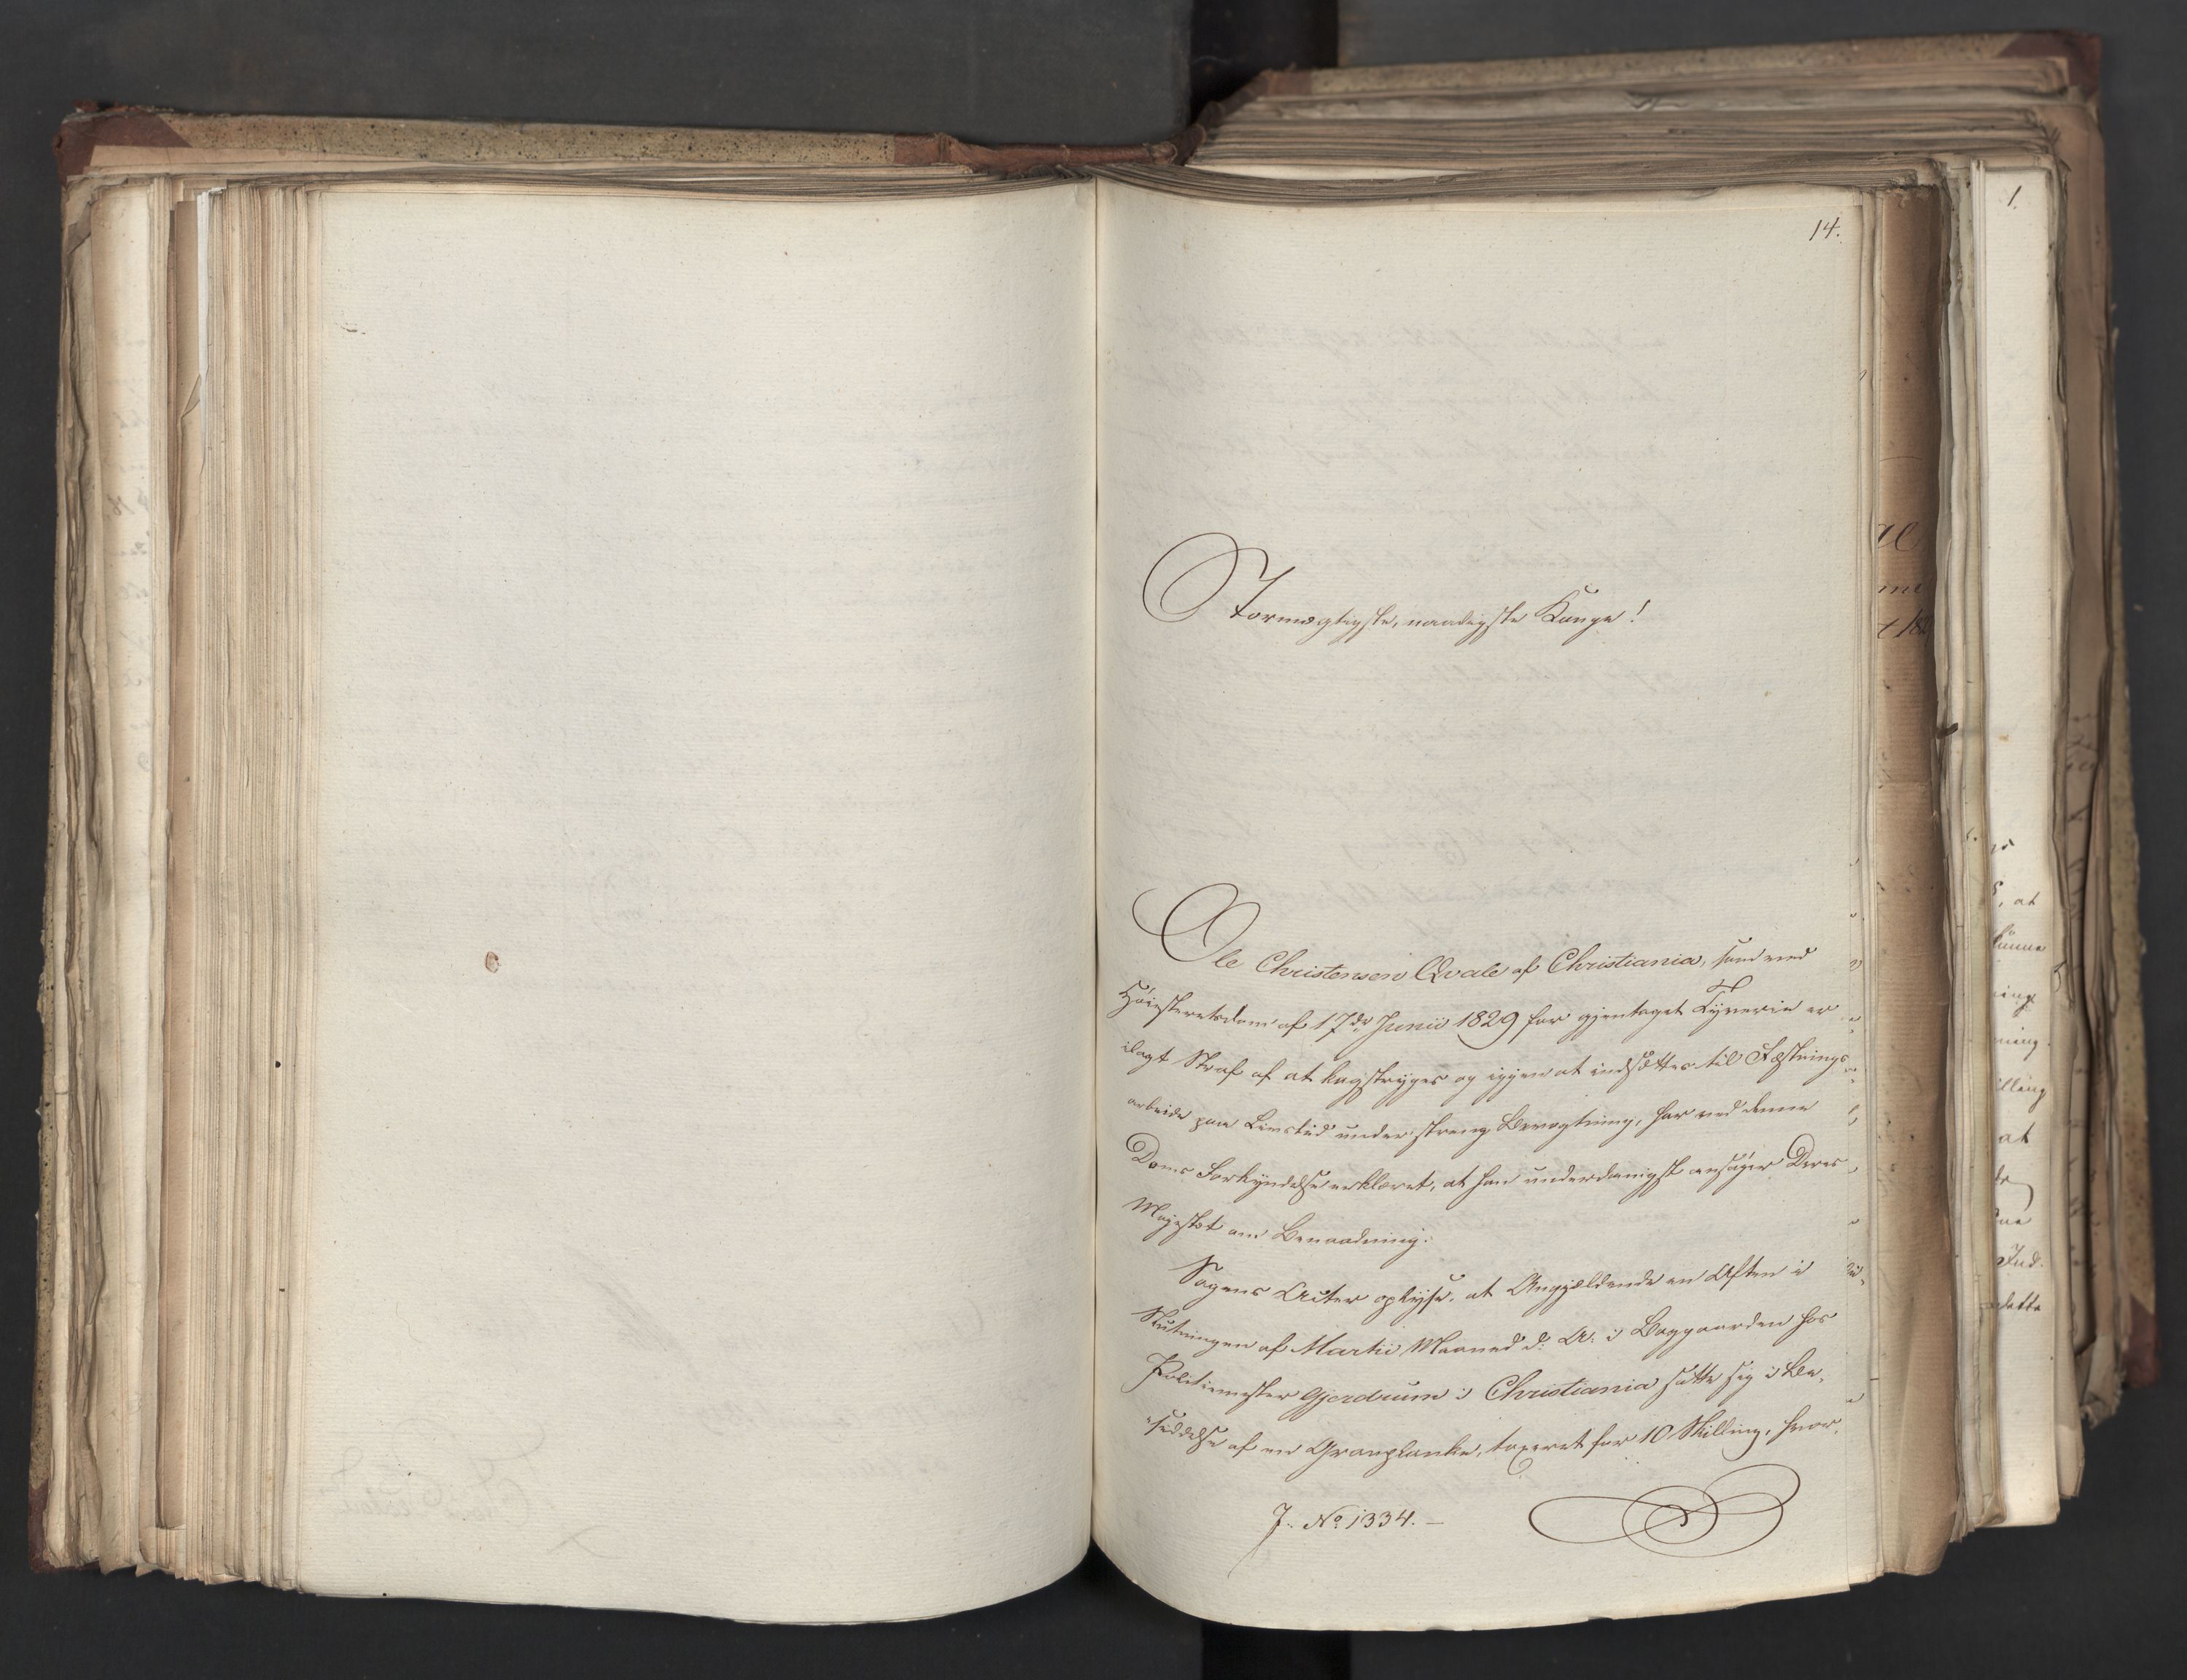 14.
Stormægtigste, naadigste Konge!
Ole Christensen Qvale af Christiania, som ved
Høiesteretsdom af 17de Junii 1829 for gjentaget Tyverie er
ilagt Straf af at kagstryges og igjen at indsættes til Fæstnings
arbeide paa Livstid under streng Bevogtning, har ved denne
Doms Forkyndelse erklæret, at han underdanigst ansøger Deres
Majestæt om Benaadning.
Sagens Acter oplyse, at Angjældende en Aften i
Slutningen af Martii Maaned d: A. i Baggaarden hos
Politiemester Gjerdrum i Christiania satte sig i Be-
siddelse af en Granplanke, taxeret for 10 Skilling, hvor-
J. No 1334. —
1.